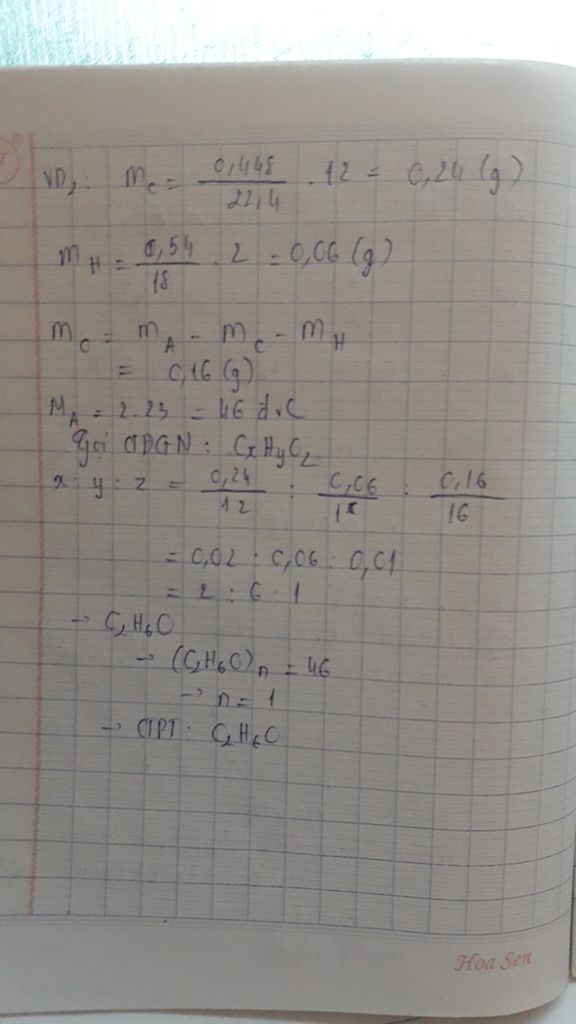 VD₂: m_C = 0,448/22,4 . 12 = 0,24 (g)
m_H = 0,54/18 . 2 = 0,06 (g)
m_O = m_A - m_C - m_H
= 0,16 (g)
M_A = 2.23 = 46 đvC
Gọi CTĐGN: CxHyOz
x : y : z = 0,24/12 : 0,06/1 : 0,16/16
= 0,02 : 0,06 : 0,01
= 2 : 6 : 1
→ C₂H₆O
→ (C₂H₆O)n = 46
→ n = 1
→ CTPT: C₂H₆O
Hoa Sen